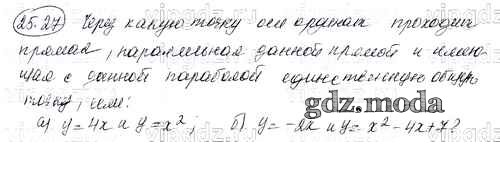 25.27 Через какую точку оси ординат проходит
прямая, параллельная данной прямой и имею-
щая с данной параболой единственную общую
точку, если:
а) y = 4x и y = x²; б) y = -2x и y = x² - 4x + 7?
gdz.moda